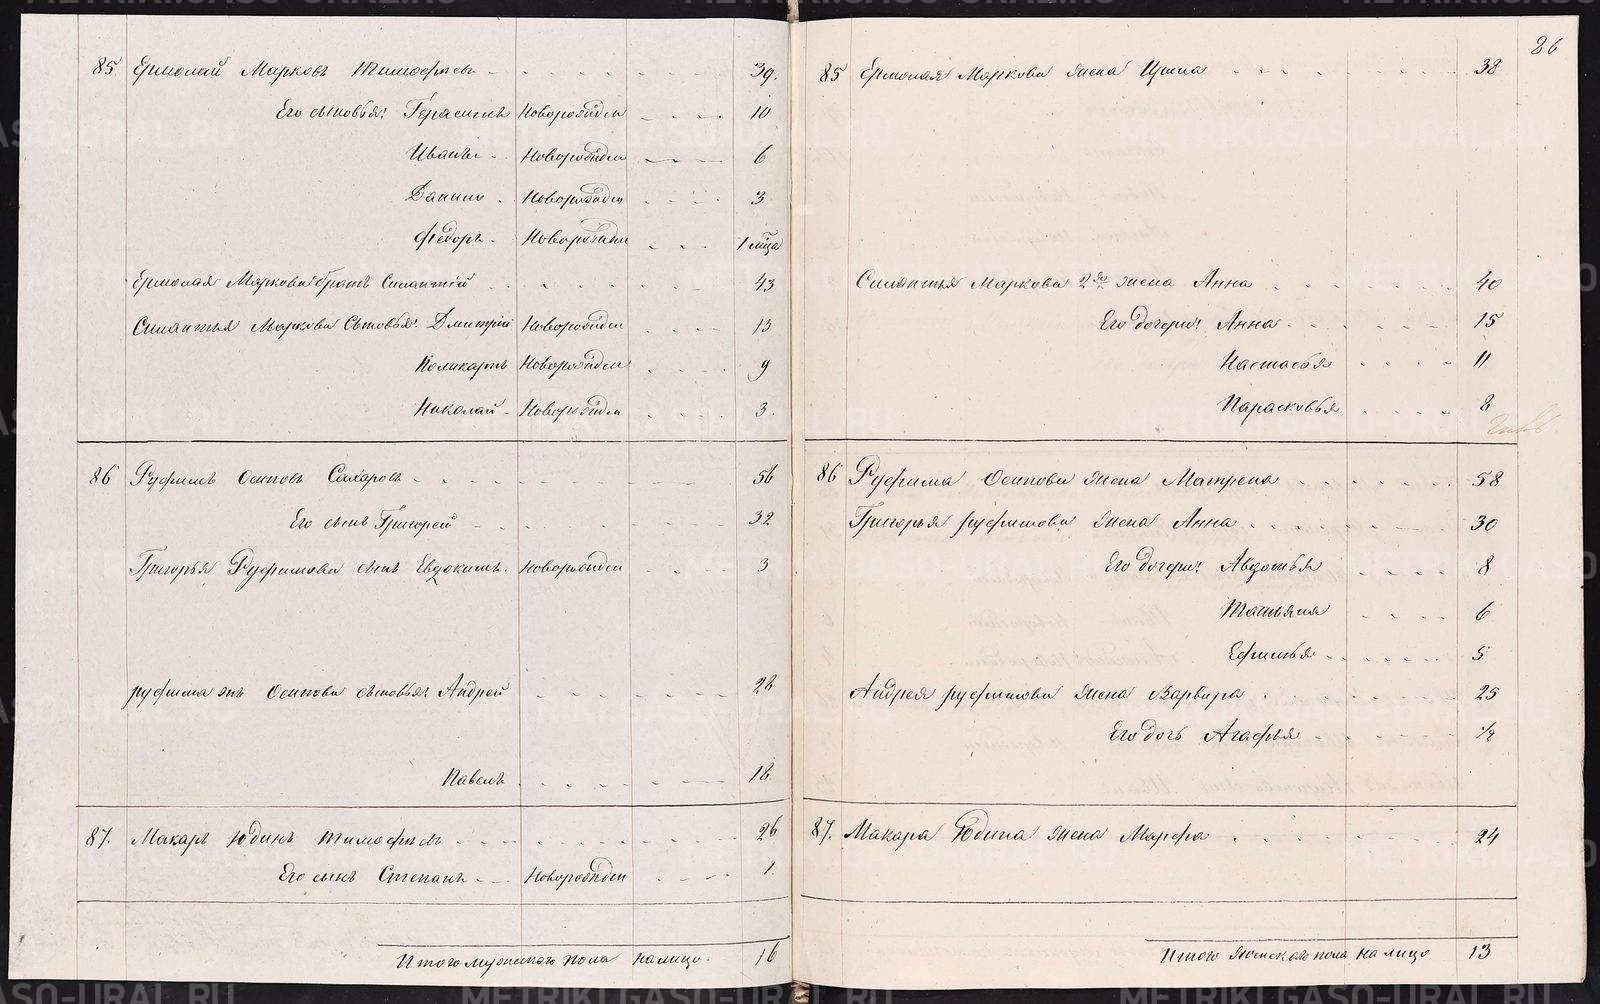 26
85 Ермолай Марковъ Тимофѣевъ 39.
Его сыновья: Герасимъ Новорожден 10
Иванъ Новорожден 6
Данило Новорожден 3
Федоръ Новорожден 1 мца
Ермолая Маркова братъ Силантій 43
Силантья Маркова Сыновья: Дмитрій Новорожден 13
Поликарпъ Новорожден 9
Николай Новорожден 3.
86 Руфимъ Осиповъ Сахаровъ 56
Его сынъ Григорей 32
Григорья Руфимова сынъ Евдокимъ. Новорожден 3
руфима жъ Осипова сыновья: Андрей 28
Павелъ 18
87. Макаръ Юдинъ Тимофѣевъ 26
Его сынъ Степанъ Новорожден 1.
Итого мужескаго пола на лицо. 16
85 Ермолая Маркова жена Ирина 38
Силантья Маркова 2я жена Анна 40
Его дочери: Анна 15
Настасья 11
Парасковья 8
86 Руфима Осипова жена Матрена 58
Григорья руфимова жена Анна 30
Его дочери: Авдотья 8
Татьяна 6
Ефимья 5
Андрея руфимова жена Варвара 25
Его дочь Агафья ½
87. Макара Юдина жена Марфа 24
Итого Женскаго пола на лицо 13
METRIKI.GASO-URAL.RU